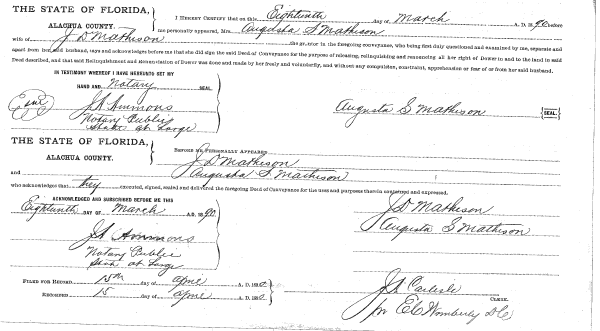 THE STATE OF FLORIDA,
ALACHUA COUNTY.
I HEREBY CERTIFY that on this Eighteenth day of March A. D. 1890 before
me personally appeared, Mrs. Augusta S Mathison
wife of J. D Mathison the grantor in the foregoing conveyance, who being first duly questioned and examined by me, separate and
apart from her said husband, says and acknowledges before me that she did sign the said Deed of Conveyance for the purpose of releasing, relinquishing and renouncing all her right of Dower in and to the land in said
Deed described, and that said Relinquishment and Renunciation of Dower was done and made by her freely and voluntarily, and without any compulsion, constraint, apprehension or fear of or from her said husband.
IN TESTIMONY WHEREOF I HAVE HEREUNTO SET MY
HAND AND Notary SEAL
J. A. Ammons
Notary Public
State at Large
Augusta S Mathison [SEAL.]
THE STATE OF FLORIDA,
ALACHUA COUNTY.
BEFORE ME PERSONALLY APPEARED
J. D Mathison
and Augusta S Mathison
who acknowledges that they executed, signed, sealed and delivered the foregoing Deed of Conveyance for the uses and purposes therein contained and expressed.
ACKNOWLEDGED AND SUBSCRIBED BEFORE ME THIS
Eighteenth DAY OF March A.D. 1890
J. D Mathison
Augusta S Mathison
J. A. Ammons
Notary Public
State at Large
FILED FOR RECORD 15th day of April A. D. 1890
RECORDED 15 day of April A. D. 1890
J. A. Carlisle CLERK.
pr E C Womberly D C